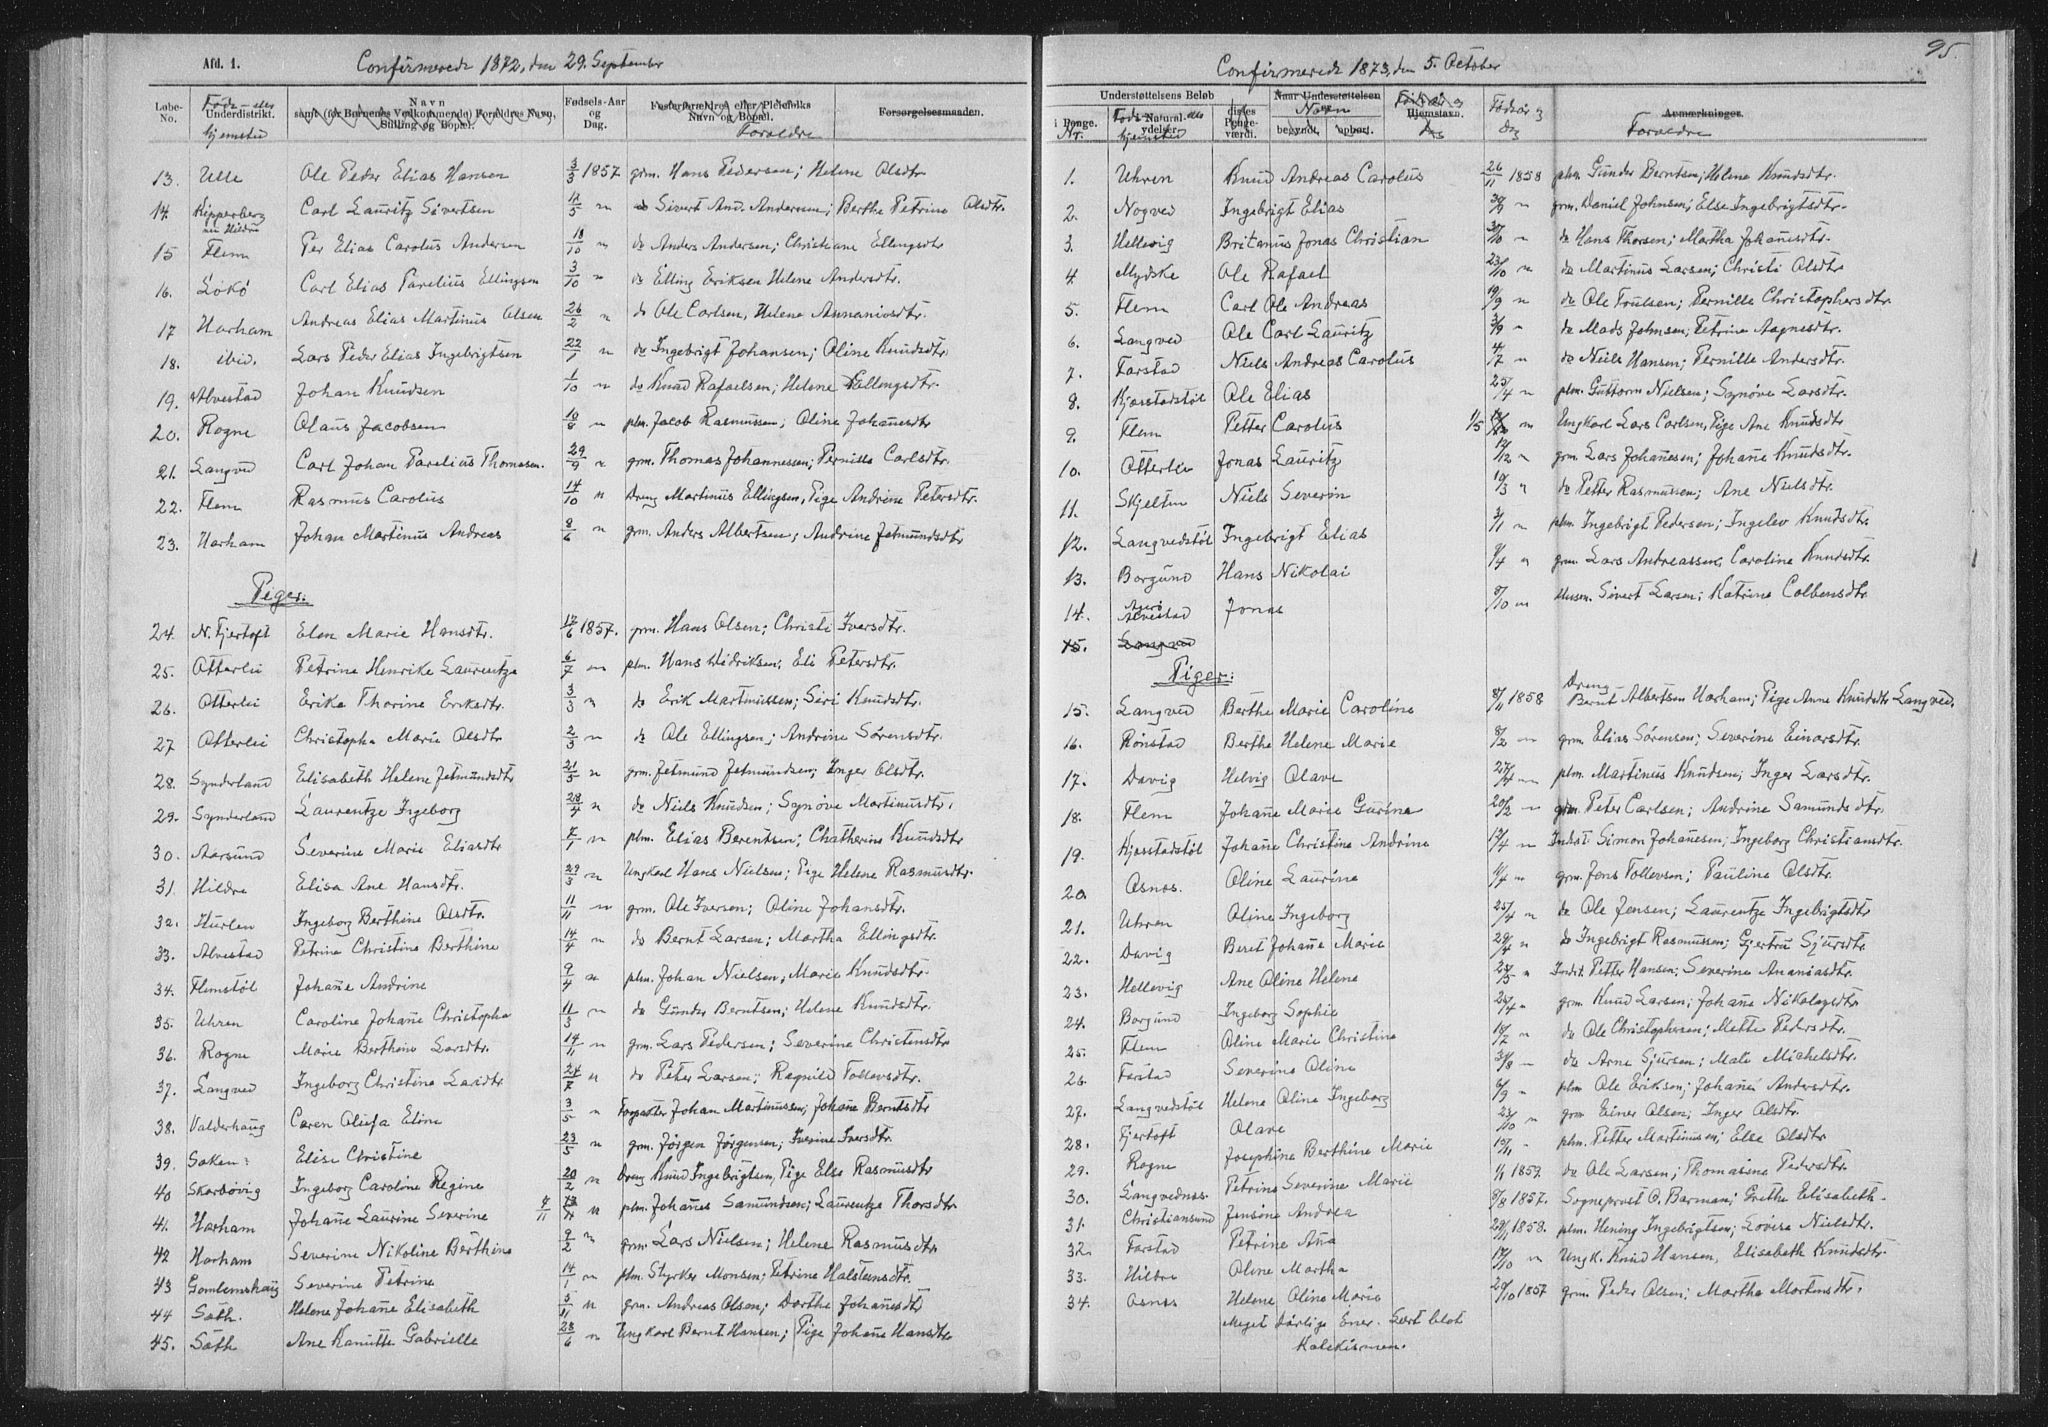 Afd. 1. Confirmerede 1872, den 29. September
Løbe-No. Føde- eller Hjemsted Underdistrikt. Navn samt (for Børnenes Vedkommende) Forældres Navn, Stilling og Bopæl. Fødsels-Aar og Dag. Fosterforældres eller Pleiefolks Navn og Bopæl. Forældre Forsørgelsesmaaden.
13. Ulle Ole Peder Elias Hansen 3/3 1857 grm. Hans Pedersen; Helene Olsdtr
14. Kipperberg nu Hildre Carl Lauritz Sivertsen 12/5 " do Sivert And. Andersen; Berthe Petrine Olsdtr.
15 Flem Per Elias Carolus Andersen 18/10 " do Anders Andersen; Christiane Ellingsdtr
16. Lökö Carl Elias Parelius Ellingsen 3/10 " do Elling Eriksen Helene Andersdtr.
17 Harham Andreas Elias Martinus Olsen 26/2 " do Ole Carlsen, Helene Annaniasdtr.
18. ibid. Lars Peder Elias Ingebrigtsen 22/1 " do Ingebrigt Johansen; Oline Knudsdtr
19. Alvestad Johan Knudsen 1/10 " do Knud Rafaelsen; Helene Ellingsdtr.
20. Rogne Olaus Jacobsen 18/8 " plm. Jacob Rasmussen; Oline Johanesdtr
21. Langved Carl Johan Parelius Thomasen. 29/9 " grm. Thomas Johannessen; Pernille Carlsdtr.
22. Flem Rasmus Carolus 14/10 " Dreng Martinus Ellingsen, Pige Andrine Petersdtr.
23. Harham Johan Martinus Andreas 8/6 " grm. Anders Albertsen; Andrine Jetmundsdtr
Piger:
24. N. Fjertoft Elen Marie Hansdtr. 12/6 1857. grm. Hans Olsen; Christi Iversdtr.
25. Otterlei Petrine Henrike Laurentze 6/7 " plm. Hans Didriksen, Eli Petersdtr.
26. Otterlei Erika Thorine Eriksdtr. 3/3 " do Erik Martinussen; Siri Knudsdtr.
27 Otterlei Christopha Marie Olsdtr 2/3 " do Ole Ellingsen; Andrine Sörensdtr.
28. Synderland Elisabeth Helene Jetmundsdtr 21/5 " grm. Jetmund Jetmundsen; Inger Olsdtr.
29. Synderland Laurentze Ingeborg 28/4 " do Niels Knudsen; Synöve Martinusdtr.
30. Aarsund Severine Marie Eliasdtr 7/1 " plm. Elias Berentsen; Chatherine Knudsdtr
31. Hildre Elisa Ane Hansdtr. 29/3 " Ungkarl Hans Nielsen; Pige Helene Rasmusdtr.
32. Hurlen Ingeborg Berthine Olsdtr. 11/11 " grm. Ole Iversen; Oline Johansdtr.
33. Alvestad Petrine Christine Berthine 14/4 " do Bernt Larsen; Martha Ellingsdtr.
34. Flemstöl Johañe Andrine 9/4 " plm. Johan Nielsen; Marie Knudsdtr.
35. Uhren Caroline Johañe Christopha 11/3 " do Gunder Berntsen; Helene Knudsdtr.
36. Rogne Marie Berthine Larsdtr. 14/11 " grm. Lars Pedersen; Severine Christensdtr
37. Langved Ingeborg Christine Larsdtr 24/7 " do Peter Larsen; Ragnild Tollevsdtr.
38. Valderhaug Caren Olufa Eline 3/5 " Forpakter Johan Martinussen; Johañe Berntsdtr
39. Söken: Elise Christine 23/5 " grm. Jörgen Jörgensen; Iverine Iversdtr.
40 Skarbövig Ingeborg Caroline Regine 20/2 " Dreng Knud Ingebrigtsen, Pige Else Rasmusdtr
41. Harham Johañe Laurine Severine 4/11 " plm. Johañes Samundsen; Laurentze Thorsdtr
42 Harham Severine Nikoline Berthine 9/2 " grm. Lars Nielsen; Helene Rasmusdtr.
43 Gamlemshaug Severine Petrine 14/1 " plm. Styrker Monsen; Petrine Halstensdtr.
44 Säth. Helene Johañe Elisabeth 5/11 " grm. Andreas Olsen; Dorthe Johañesdtr
45. Säth Ane Kanutte Gabrielle 28/6 " Ungkarl Bernt Hansen; Pige Johañe Hansdtr
95.
Confirmerede 1873, den 5. October
Understøttelsens Beløb Naar Understøttelsen
i Penge. Nr. Føde- eller Hjemsted Naturalydelser. disses Pengeværdi. Navn begyndt. ophørt. Hjemstavn. Fødselsår og Dag Anmærkninger. Forældre
1. Uhren Knud Andreas Carolus 26/11 1858 plm. Gunder Berntsen; Helene Knudsdtr.
2. Nogved Ingebrigt Elias 30/9 " grm. Daniel Johnsen; Else Ingebrigtsdtr.
3. Hellevig Britanus Jonas Christian 30/10 " do Hans Thorsen; Martha Johañesdtr.
4. Mydske Ole Rafael 23/10 " do Martinus Larsen; Christi Olsdtr
5. Flem Carl Ole Andreas 19/9 " do Ole Trulsen; Pernille Christophersdtr.
6. Langved Ole Carl Lauritz 3/9 " do Mads Johnsen; Petrine Aagnesdtr.
7. Farstad Niels Andreas Carolus 4/7 " do Niels Hansen; Pernille Andersdtr.
8. Kjærstadstöl Ole Elias 25/4 " plm. Guttorm Nielsen; Synöve Larsdtr.
9. Flem Petter Carolus 1/5 " Ungkarl Lars Carlsen, Pige Ane Knudsdtr
10. Otterlei Jonas Lauritz 12/12 " grm. Lars Johañesen; Johañe Knudsdtr.
11. Skjelten Niels Severin 10/3 " do Petter Rasmussen; Ane Nielsdtr.
12. Langvedstöl Ingebrigt Elias 3/1 " plm. Ingebrigt Pedersen; Ingelev Knudsdtr.
13. Borgund Hans Nikolai 9/4 " grm. Lars Andreassen, Caroline Knudsdtr.
14. Alvestad Jonas 8/10 " Husm. Sivert Larsen; Katrine Colbensdtr.
15. Langved
Piger:
15. Langved Berthe Marie Caroline 8/11 1858 Dreng Bernt Albertsen Harham; Pige Anne Knudsdtr Langved.
16. Rönstad Berthe Helene Marie 8/2 " grm. Elias Sörensen; Severine Einarsdtr.
17. Davig Helvig Olave 27/4 " plm. Martinus Knudsen; Inger Larsdtr.
18. Flem Johañe Marie Gurine 20/2 " grm. Peter Carlsen; Andrine Samundsdtr.
19. Kjærstadstöl Johañe Christine Andrine 12/4 " Inderst Simon Johañesen; Ingeborg Christiansdtr.
20. Asnæs. Oline Laurine 4/4 " grm. Jens Tollevsen; Pauline Olsdtr.
21. Uhren Oline Ingeborg 25/4 " do Ole Jensen; Laurentze Ingebrigtsdtr
22. Davig Beret Johañe Marie 29/4 " do Ingebrigt Rasmussen; Gjertru Sjursdtr.
23. Hellevig Ane Oline Helene 28/5 " Inderst. Petter Hansen; Severine Ananiasdtr.
24. Borgund Ingeborg Sophie 26/4 " grm. Knud Larsen; Johañe Nikolaysdtr.
25. Flem Oline Marie Christine 10/7 " do Ole Christophersen; Mette Pedersdtr.
26. Farstad Severine Oline 31/8 " do Arne Sjursen; Male Michelsdtr.
27. Langvedstöl Helene Oline Ingeborg 6/9 " plm. Ole Eriksen; Johañe Andersdtr.
28. Fjertoft Olave 23/10 " grm. Einer Olsen; Inger Olsdtr.
29. Rogne Josephine Berthine Marie 10/11 " plm. Petter Martinusen; Else Olsdtr
30. Langvednæs. Petrine Severine Marie 1/1 1857. do Ole Larsen; Thomasine Pedersdtr.
31. Christiansund Jensine Andrea 9/8 1857. Sogneprest O. Barman; Grethe Elisabeth.
32. Farstad Petrine Aña 29/1 1858. plm. Hening Ingebrigtsen; Lovise Nielsdtr.
33. Hildre Oline Martha 12/10 " Ungk. Knud Hansen, Elisabeth Knudsdtr.
34. Asnæs Helene Oline Marie 20/10 1857 grm. Peder Olsen; Martha Mortensdtr.
Meget dårlige Evner. Lært blot
Katekismen.